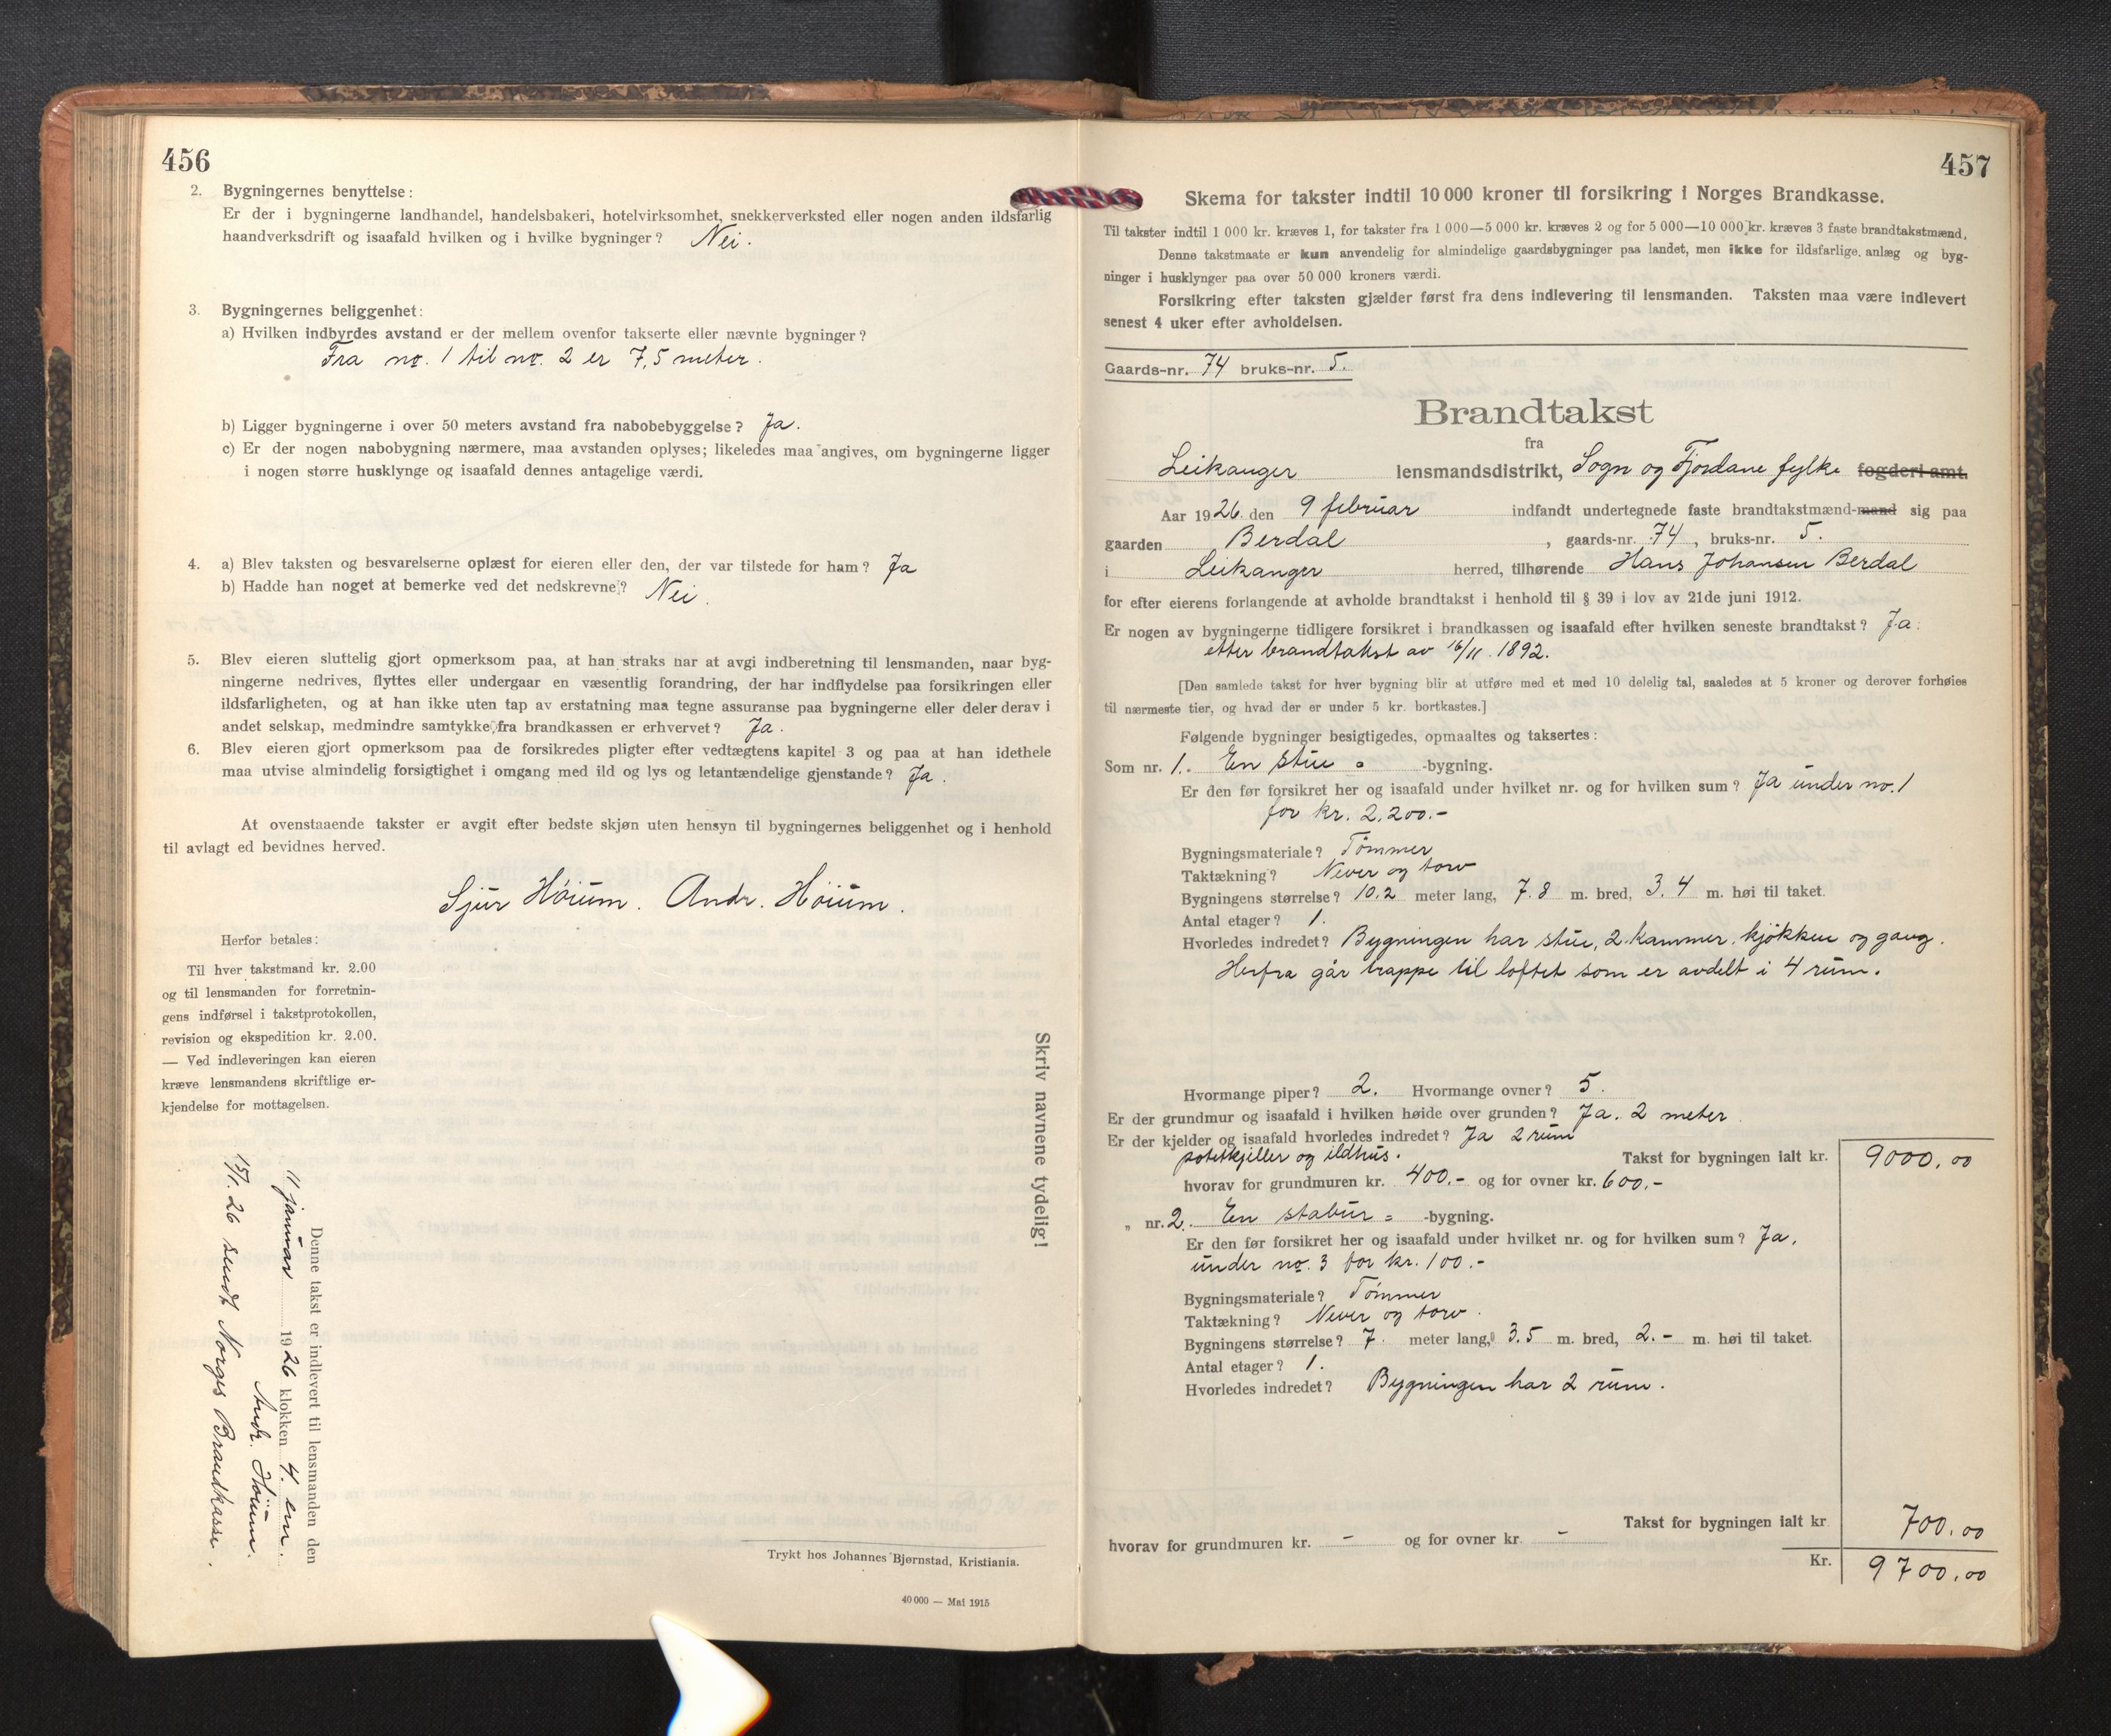 456
2. Bygningernes benyttelse:
Er der i bygningerne landhandel, handelsbakeri, hotelvirksomhet, snekkerverksted eller nogen anden ildsfarlig
haandverksdrift og isaafald hvilken og i hvilke bygninger? Nei.
3. Bygningernes beliggenhet:
a) Hvilken indbyrdes avstand er der mellem ovenfor takserte eller nævnte bygninger?
Fra no. 1 til no. 2 er 7,5 meter.
b) Ligger bygningerne i over 50 meters avstand fra nabobebyggelse? Ja.
c) Er der nogen nabobygning nærmere, maa avstanden oplyses; likeledes maa angives, om bygningerne ligger
i nogen større husklynge og isaafald dennes antagelige værdi.
4. a) Blev taksten og besvarelserne oplæst for eieren eller den, der var tilstede for ham? Ja
b) Hadde han noget at bemerke ved det nedskrevne? Nei.
5. Blev eieren sluttelig gjort opmerksom paa, at han straks har at avgi indberetning til lensmanden, naar byg-
ningerne nedrives, flyttes eller undergaar en væsentlig forandring, der har indflydelse paa forsikringen eller
ildsfarligheten, og at han ikke uten tap av erstatning maa tegne assuranse paa bygningerne eller deler derav i
andet selskap, medmindre samtykke fra brandkassen er erhvervet? Ja.
6. Blev eieren gjort opmerksom paa de forsikredes pligter efter vedtægtens kapitel 3 og paa at han idethele
maa utvise almindelig forsigtighet i omgang med ild og lys og letantændelige gjenstande? Ja.
At ovenstaaende takster er avgit efter bedste skjøn uten hensyn til bygningernes beliggenhet og i henhold
til avlagt ed bevidnes herved.
Sjur Høium. Andr. Høium.
Herfor betales:
Til hver takstmand kr. 2.00
og til lensmanden for forretnin-
gens indførsel i takstprotokollen,
revision og ekspedition kr. 2.00.
— Ved indleveringen kan eieren
kræve lensmandens skriftlige er-
kjendelse for mottagelsen.
Skriv navnene tydelig!
Denne takst er indlevert til lensmanden den
11 januar 1926 klokken 4 em.
Andr. Høium.
15/1. 26 sendt Norges Brandkasse.
Trykt hos Johannes Bjørnstad, Kristiania.
40 000 — Mai 1915
457
Skema for takster indtil 10 000 kroner til forsikring i Norges Brandkasse.
Til takster indtil 1 000 kr. kræves 1, for takster fra 1 000—5 000 kr. kræves 2 og for 5 000—10 000 kr. kræves 3 faste brandtakstmænd.
Denne takstmaate er kun anvendelig for almindelige gaardsbygninger paa landet, men ikke for ildsfarlige anlæg og byg-
ninger i husklynger paa over 50 000 kroners værdi.
Forsikring efter taksten gjælder først fra dens indlevering til lensmanden. Taksten maa være indlevert
senest 4 uker efter avholdelsen.
Gaards-nr. 74 bruks-nr. 5.
Brandtakst
fra
Leikanger lensmandsdistrikt, Sogn og Fjordane fylke fogderi amt.
Aar 1926 den 9 februar indfandt undertegnede faste brandtakstmænd-mand sig paa
gaarden Berdal, gaards-nr. 74, bruks-nr. 5.
i Leikanger herred, tilhørende Hans Johansen Berdal
for efter eierens forlangende at avholde brandtakst i henhold til § 39 i lov av 21de juni 1912.
Er nogen av bygningerne tidligere forsikret i brandkassen og isaafald efter hvilken seneste brandtakst? Ja.
etter brandtakst av 16/11. 1892.
[Den samlede takst for hver bygning blir at utføre med et med 10 delelig tal, saaledes at 5 kroner og derover forhøies
til nærmeste tier, og hvad der er under 5 kr. bortkastes.]
Følgende bygninger besigtigedes, opmaaltes og taksertes:
Som nr. 1. En stue = -bygning.
Er den før forsikret her og isaafald under hvilket nr. og for hvilken sum? Ja under no. 1
for kr. 2.200.-
Bygningsmateriale? Tømmer
Taktækning? Never og torv
Bygningens størrelse? 10.2 meter lang, 7.8 m. bred, 3.4 m. høi til taket.
Antal etager? 1.
Hvorledes indredet? Bygningen har stue, 2 kammer, kjøkken og gang.
Herfra går trappe til loftet som er avdelt i 4 rum.
Hvormange piper? 2. Hvormange ovner? 5.
Er der grundmur og isaafald i hvilken høide over grunden? Ja. 2 meter.
Er der kjelder og isaafald hvorledes indredet? Ja 2 rum
potetkjeller og ildhus.
Takst for bygningen ialt kr. 9000.00
hvorav for grundmuren kr. 400.- og for ovner kr. 600.-
„ nr. 2. En stabur = -bygning.
Er den før forsikret her og isaafald under hvilket nr. og for hvilken sum? Ja,
under no. 3 for kr. 100.-
Bygningsmateriale? Tømmer
Taktækning? Never og torv.
Bygningens størrelse? 7. meter lang, 3.5 m. bred, 2.- m. høi til taket.
Antal etager? 1.
Hvorledes indredet? Bygningen har 2 rum.
Takst for bygningen ialt kr. 700.00
hvorav for grundmuren kr. - og for ovner kr. -
Kr. 9700.00